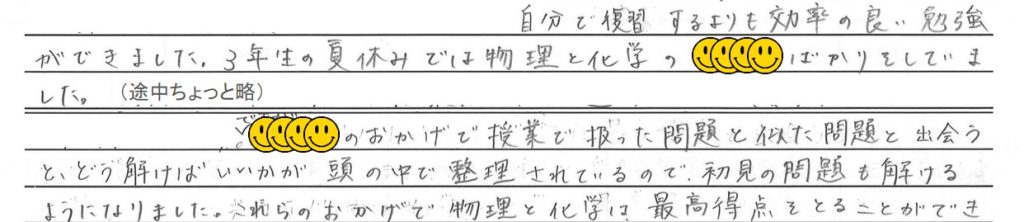 自分で復習するよりも効率の良い勉強
ができました。3年生の夏休みでは物理と化学の ばかりをしていま
した。（途中ちょっと略）
のおかげで授業で扱った問題と似た問題と出会う
と、どう解けばいいかが頭の中で整理されているので、初見の問題も解ける
ようになりました。これらのおかげで物理と化学は最高得点をとることができ